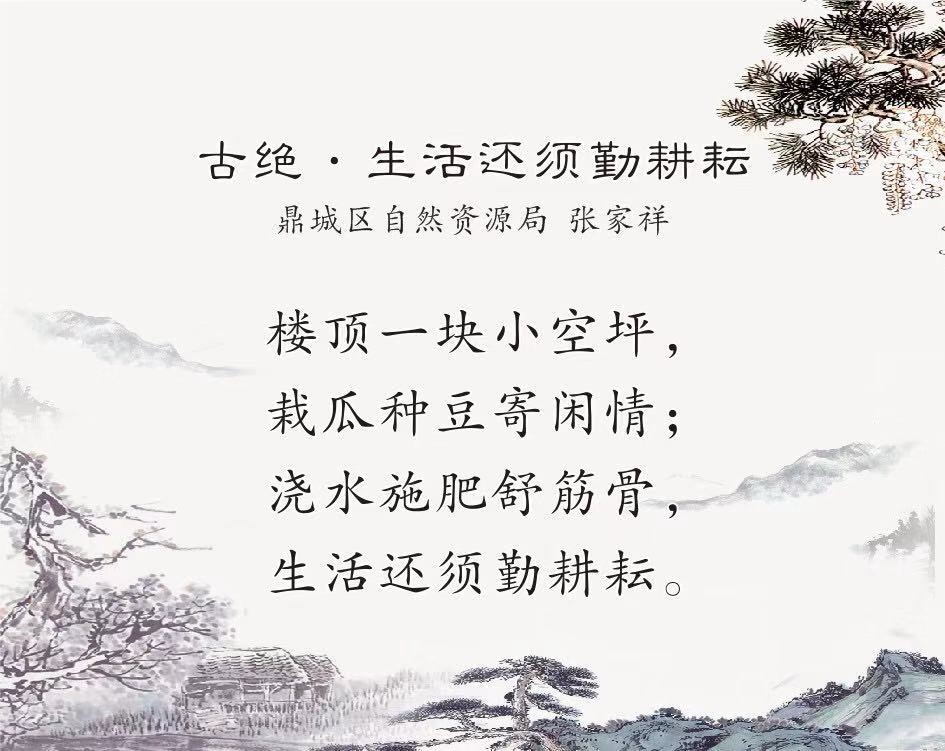 古绝·生活还须勤耕耘
鼎城区自然资源局 张家祥
楼顶一块小空坪，
栽瓜种豆寄闲情；
浇水施肥舒筋骨，
生活还须勤耕耘。